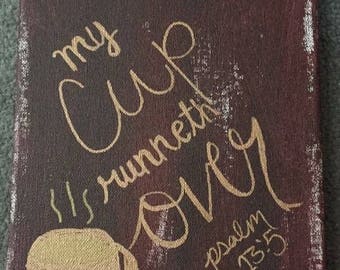 my
Cup
runneth
over
psalm
23:5